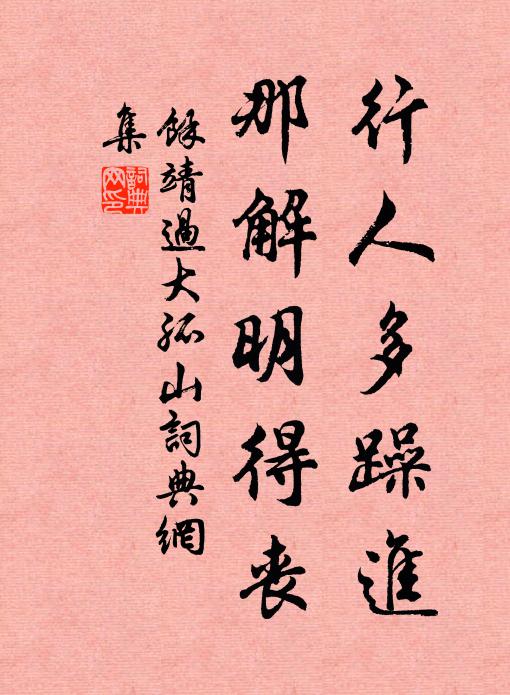 行人多躁進
那解明得喪
餘靖過大孤山詞典網
集
詞典
网印